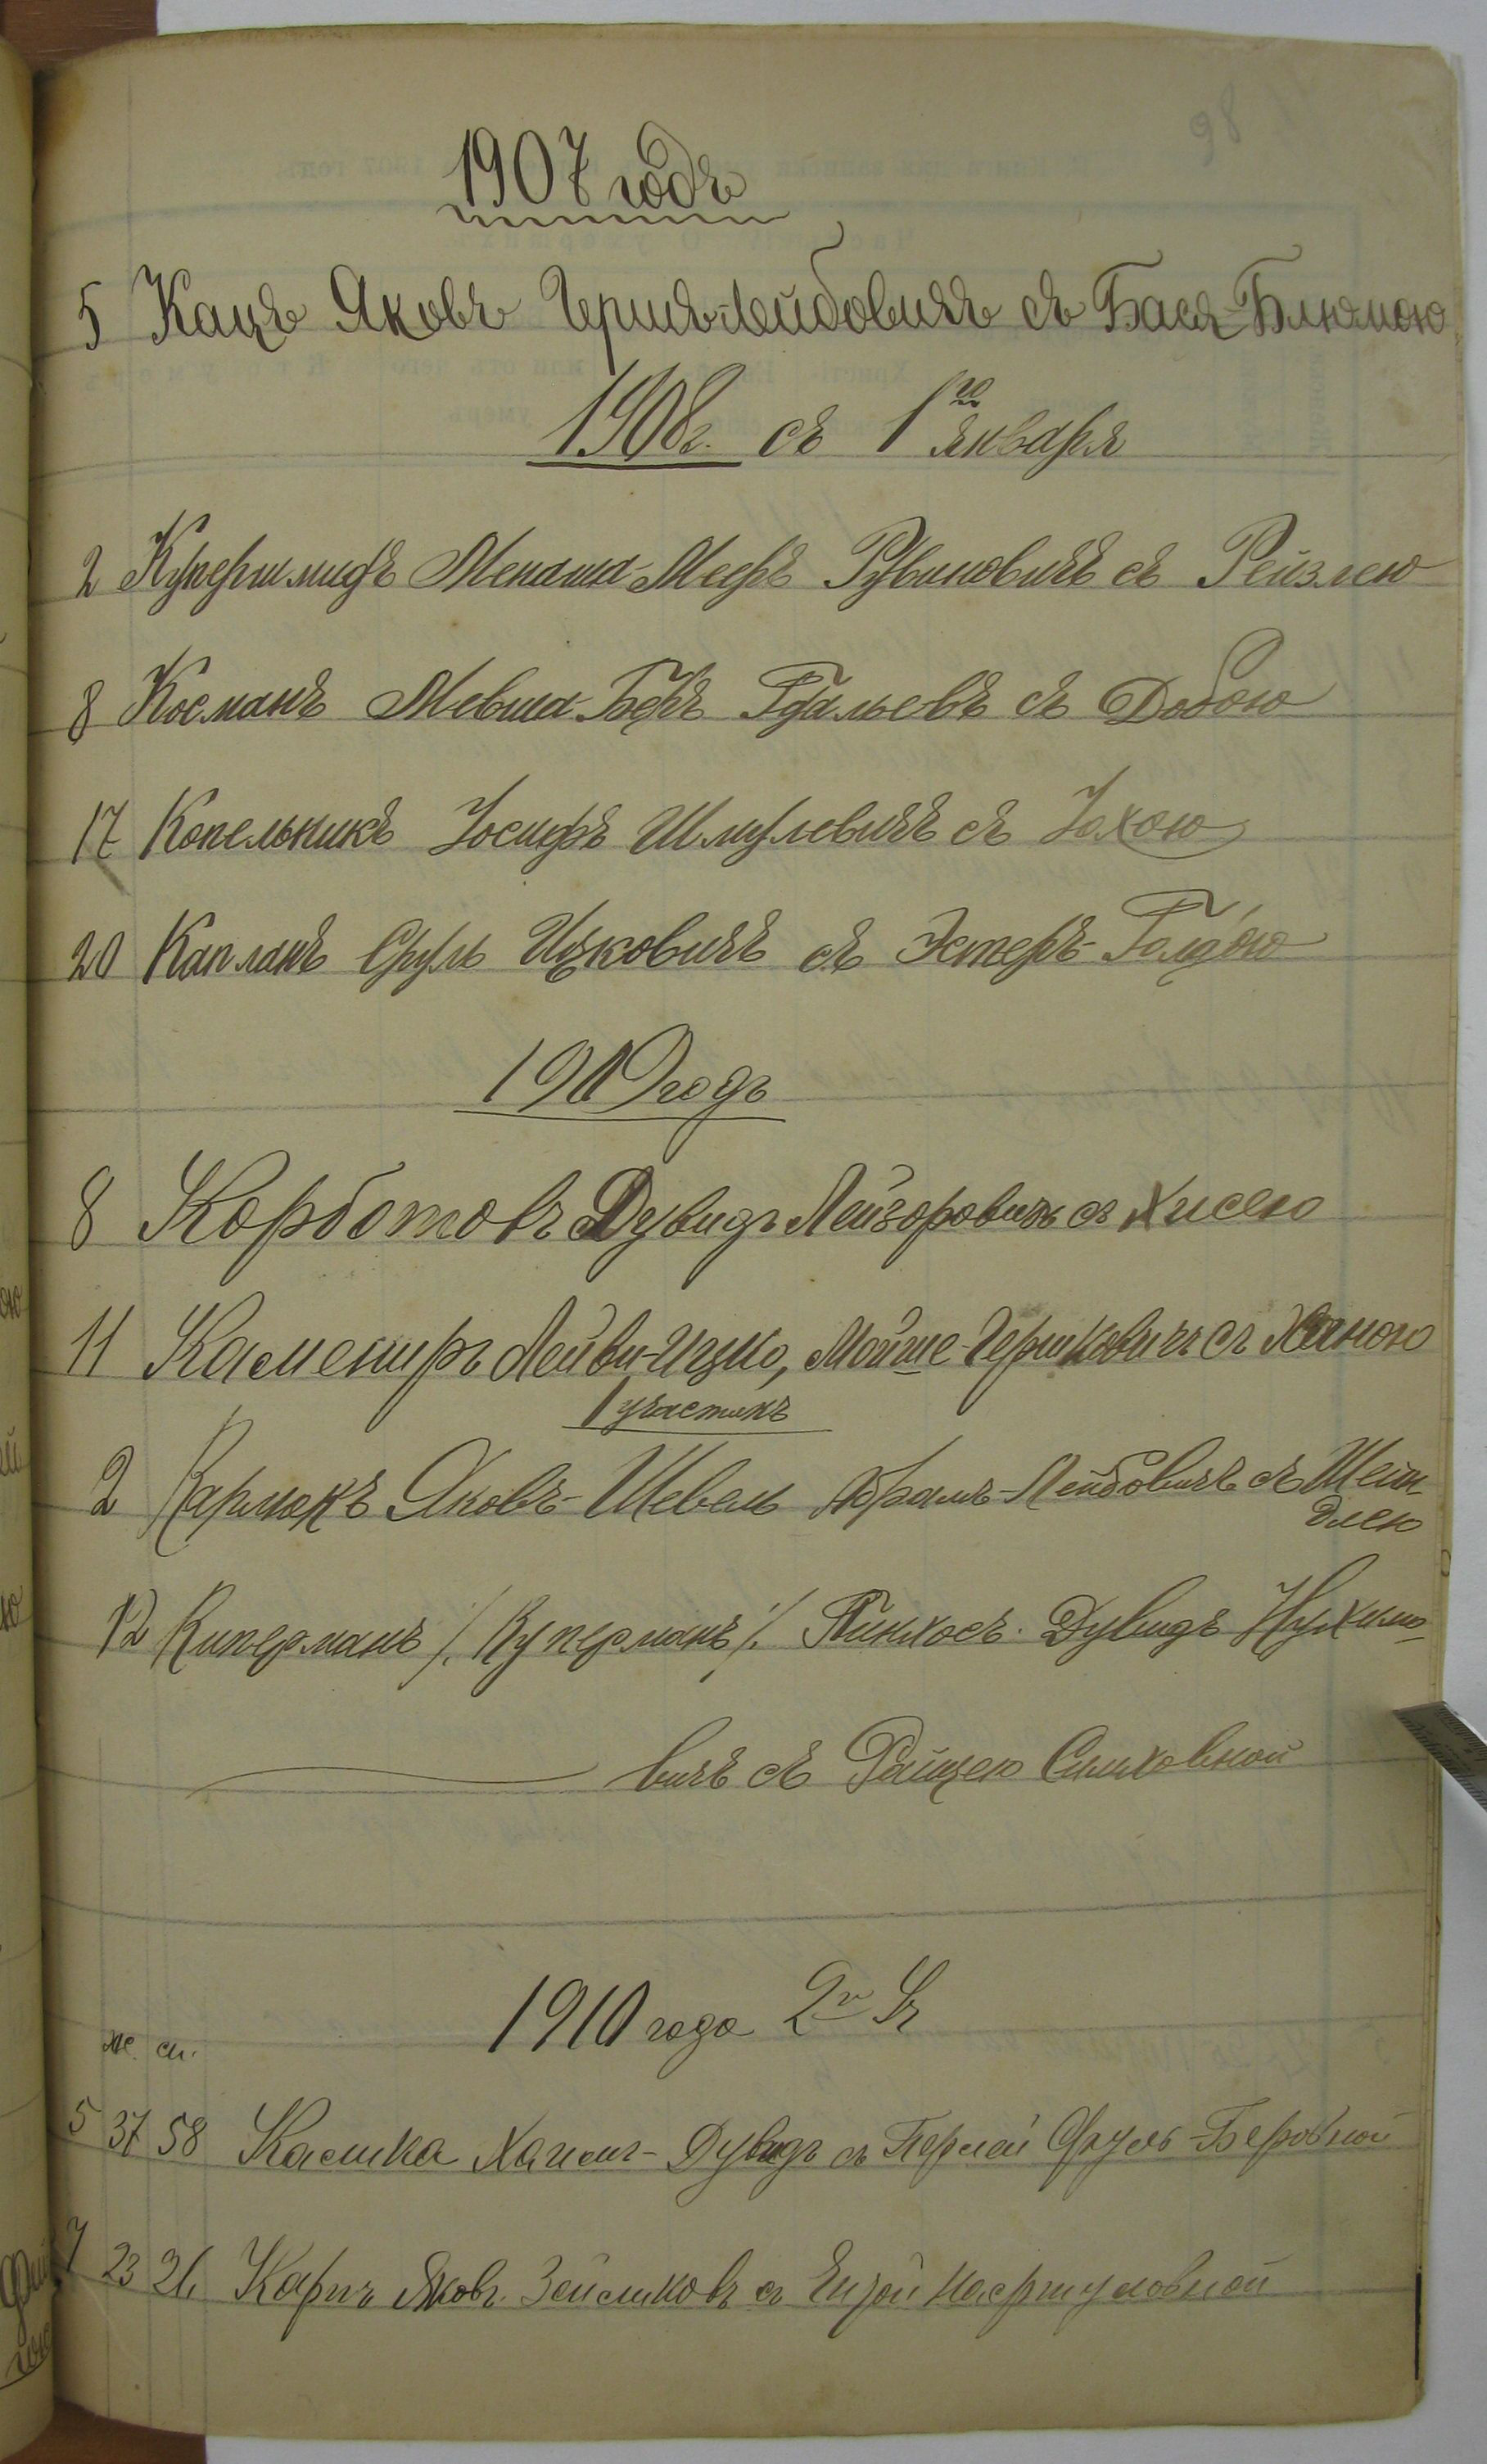 98
1907 годъ
5 Кацъ Яковъ Герша-Лейбовичъ съ Бася-Блюмою
1908 г. съ 1го января
2 Купершмидъ Менаша-Меръ Рувиновичъ съ Рейзлею
8 Косманъ Мовша-Беръ Гдальевъ съ Добою
17 Копельникъ Іосифъ Шмулевичъ съ Іохою
20 Капланъ Сруль Ицковичъ съ Эстеръ-Голдою
1909 годъ
8 Корботовъ Дувидъ Лейзоровичъ съ Хисею
11 Камениръ Лейви-Ицко, Мойше-Гершковичъ съ Ханою
1 участокъ
2 Кармакъ Яковъ-Шевель Абрамъ-Лейбовичъ съ Шейн
длею
12 Киперманъ /. Куперманъ /. Пинхосъ-Дувидъ Нухимо-
вичъ съ Райцею Симховной
1910 года 2й Уч
же. см.
5 37 58 Касшка Хаимъ-Дувидъ съ Перлей Сруль-Беровной
7 23 26 Карпъ Яковъ Зейликовъ съ